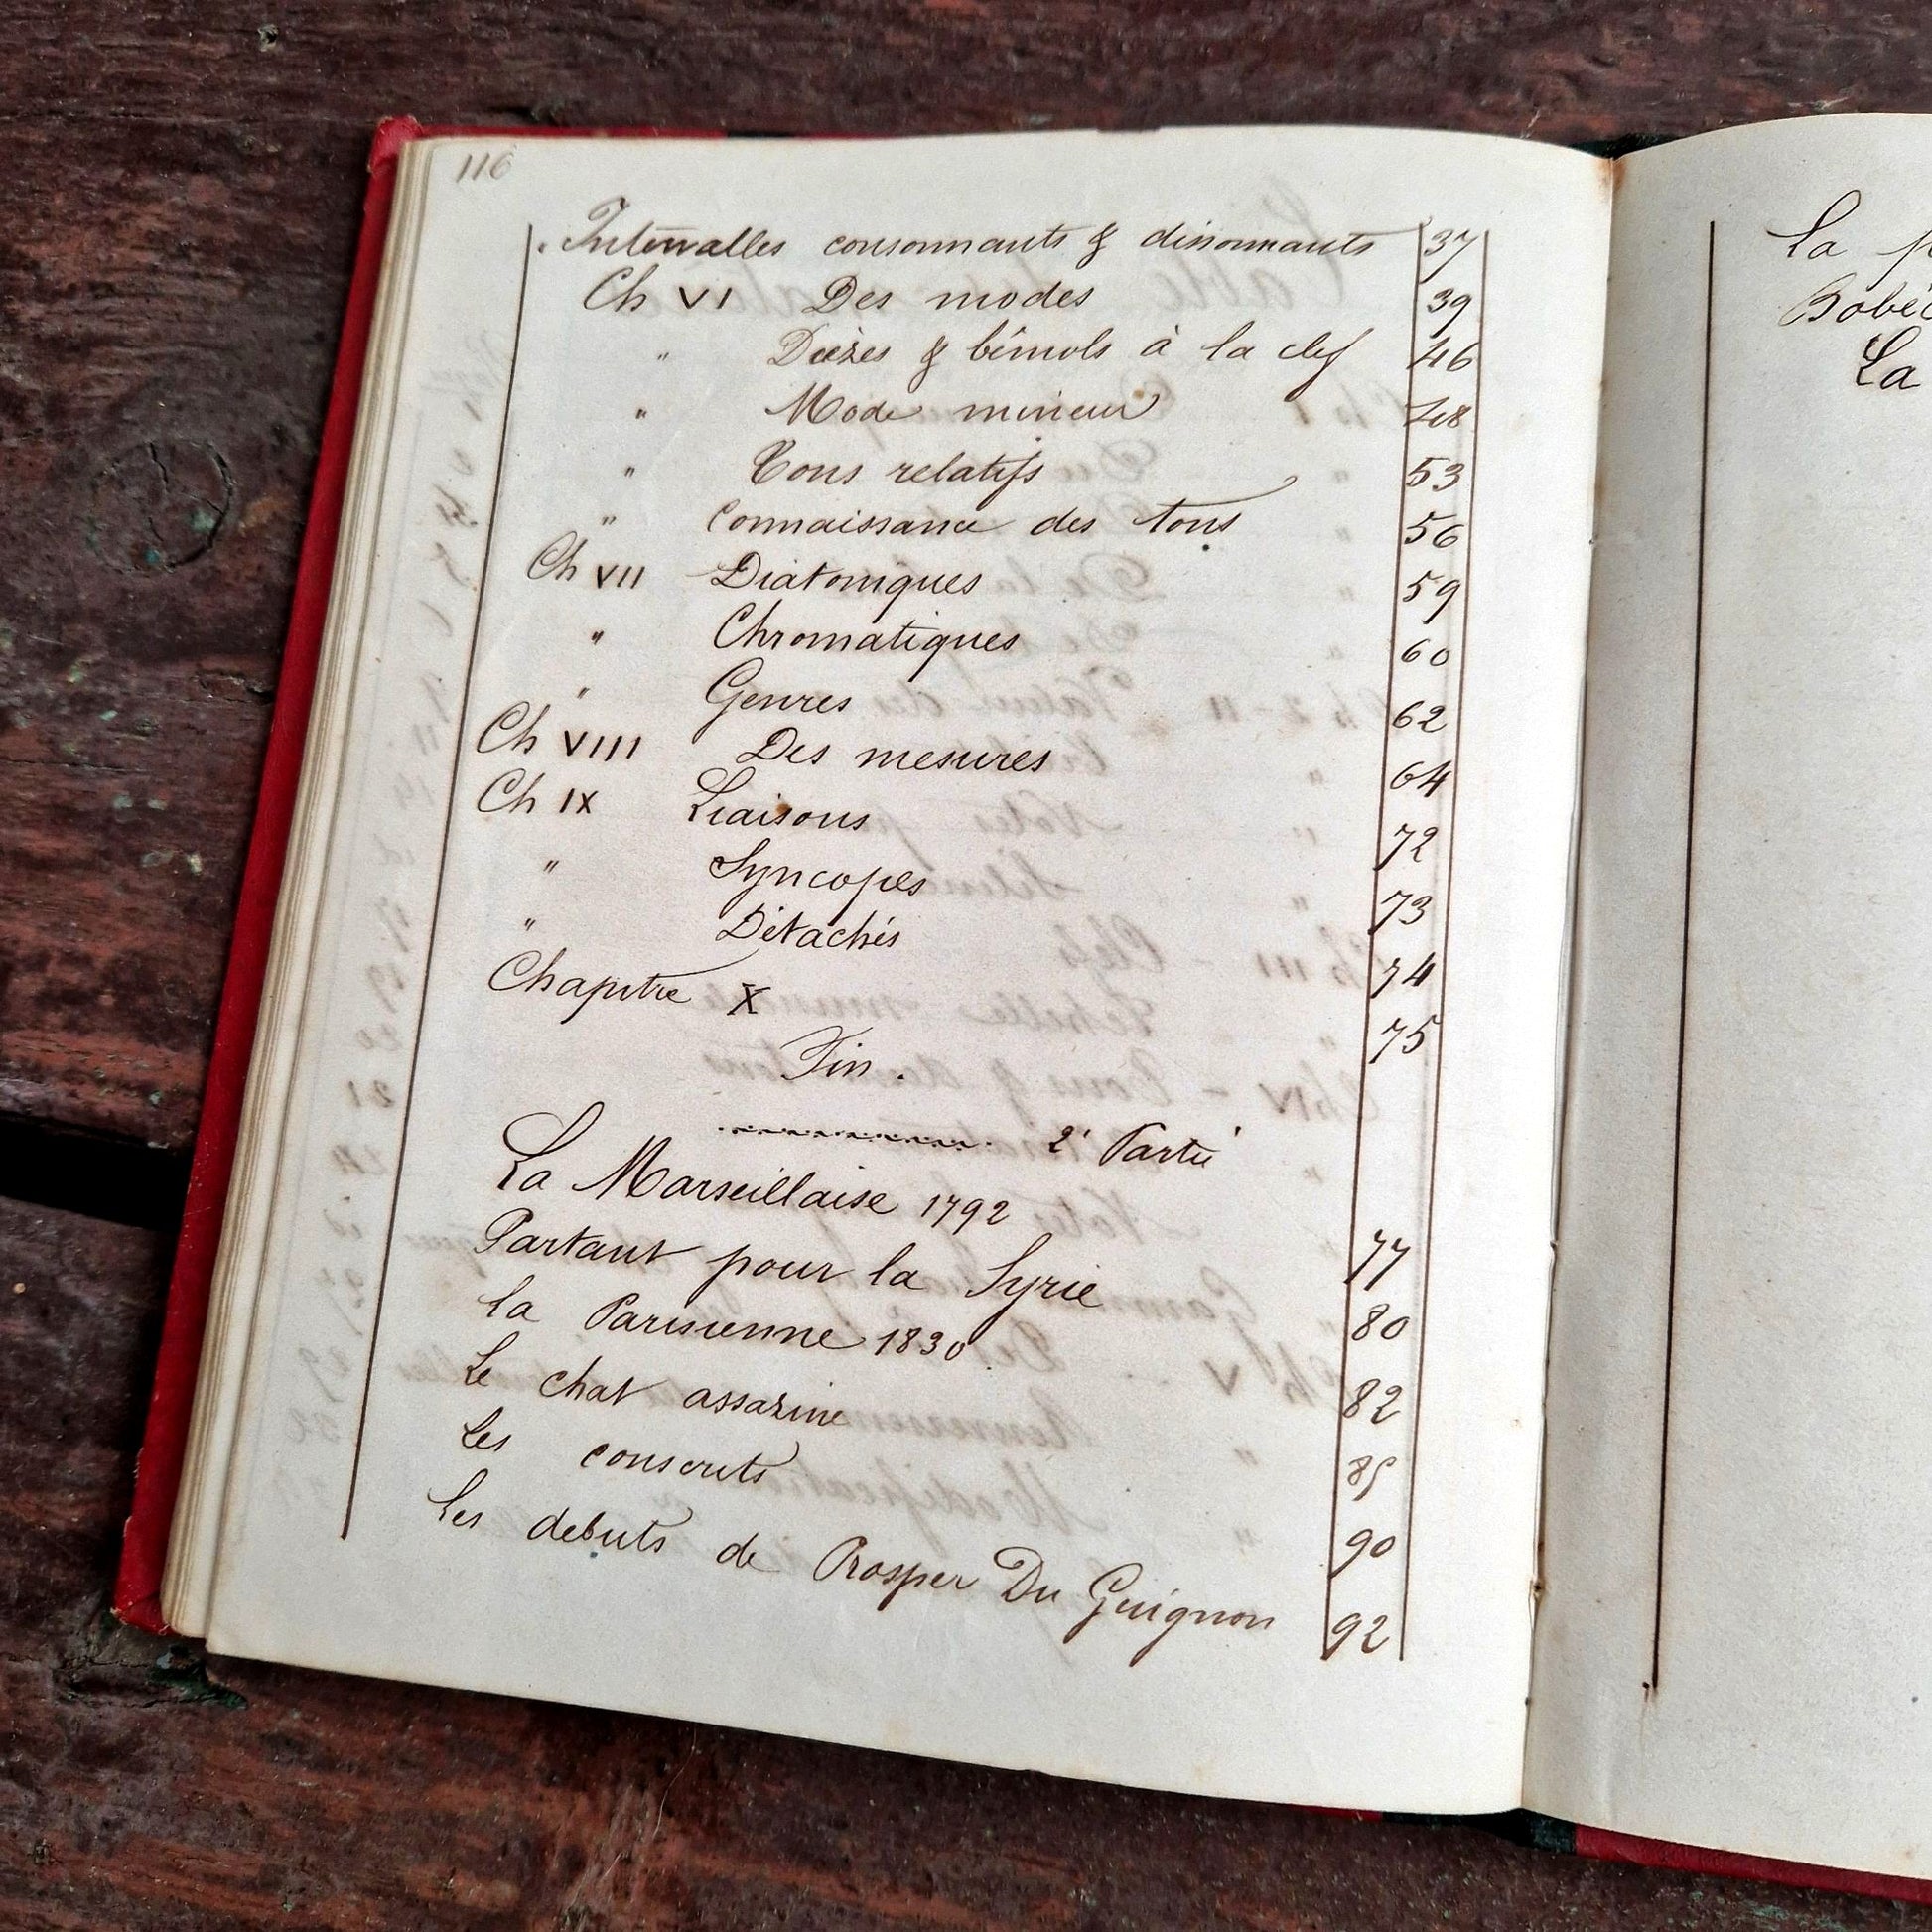 116
Intervalles consonnants & dissonnants 37
Ch VI Des modes 39
" Dièzes & bémols à la clef 46
" Mode mineur 48
" Tons relatifs 53
" Connaissance des tons 56
Ch VII Diatoniques 59
" Chromatiques 60
" Genres 62
Ch VIII Des mesures 64
Ch IX Liaisons 72
" Syncopes 73
" Détachés 74
Chapitre X 75
Fin.
2e Partie
La Marseillaise 1792 77
Partant pour la Syrie 80
la Parisienne 1830 82
Le chat assasine 85
Les conscrits 90
Les debuts de Prosper Du Guignon 92
la
La